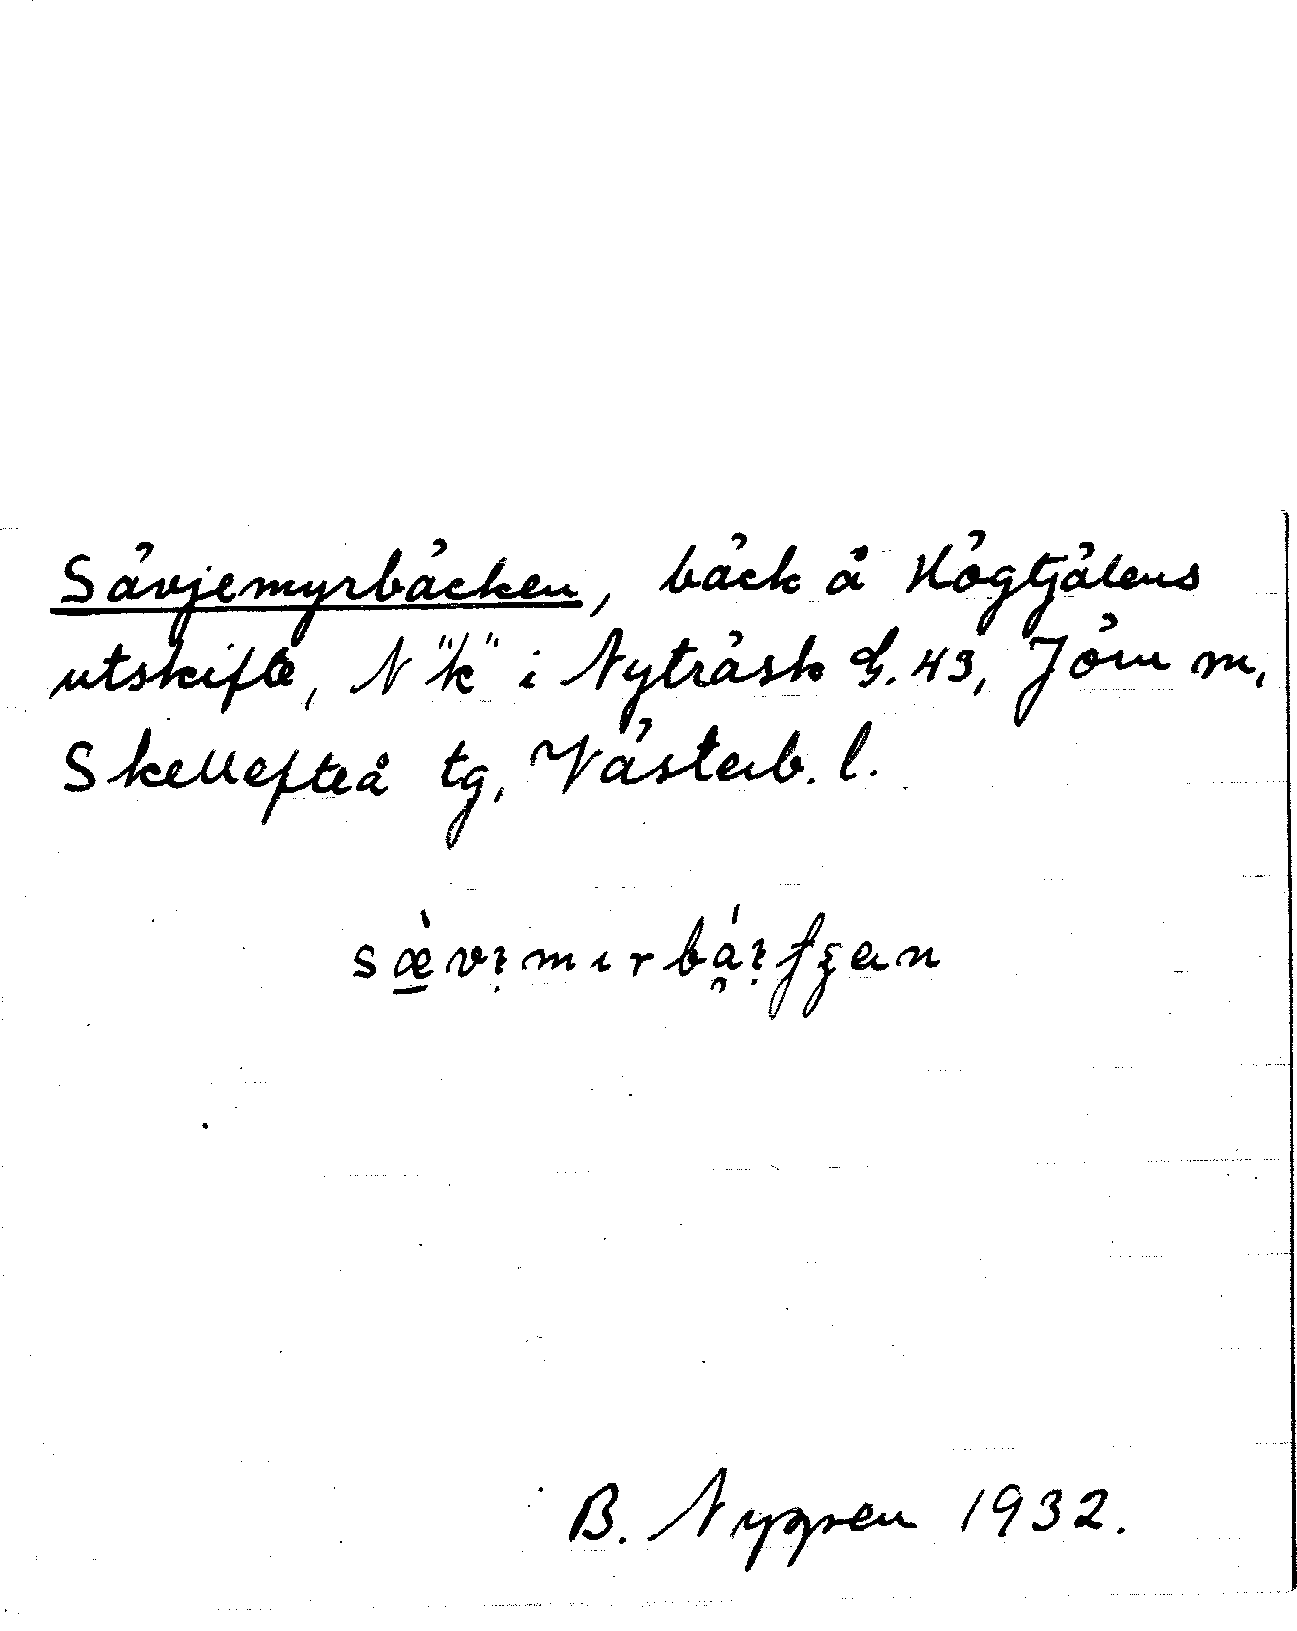 Sävjemyrbäcken, bäck å Högtjälens
utskifte, N "k" i Nyträsk G. 43, Jörn m.
Skellefteå tg, Västerb. l.
B. Nygren 1932.